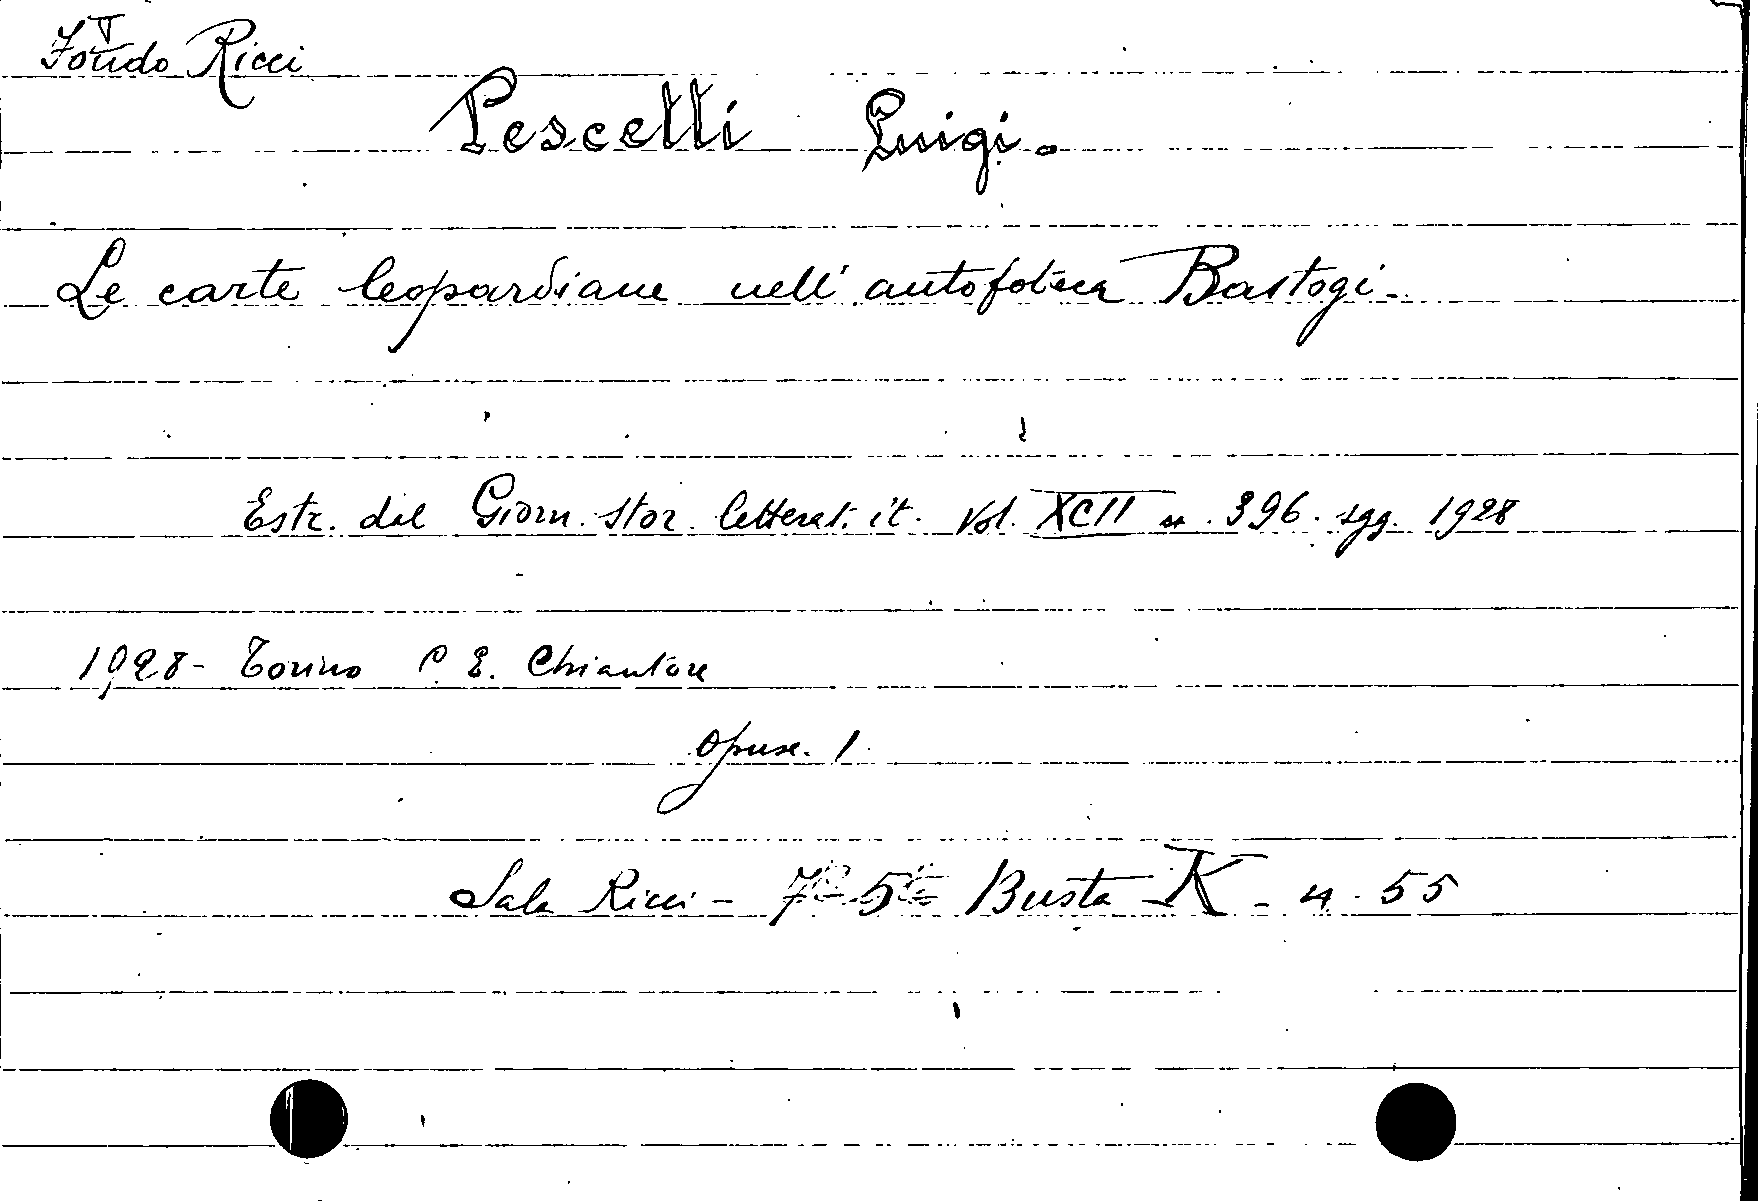 Fondo Ricci
Pescetti Luigi.
Le carte leopardiane nell'autofoteca Bastogi.
Estr. dal Giorn. stor. letterat. it. Vol. XCII n. 396. sgg. 1928
1928 - Torino C. E. Chiantore
Opusc. 1
Sala Ricci - Busta K - n. 55